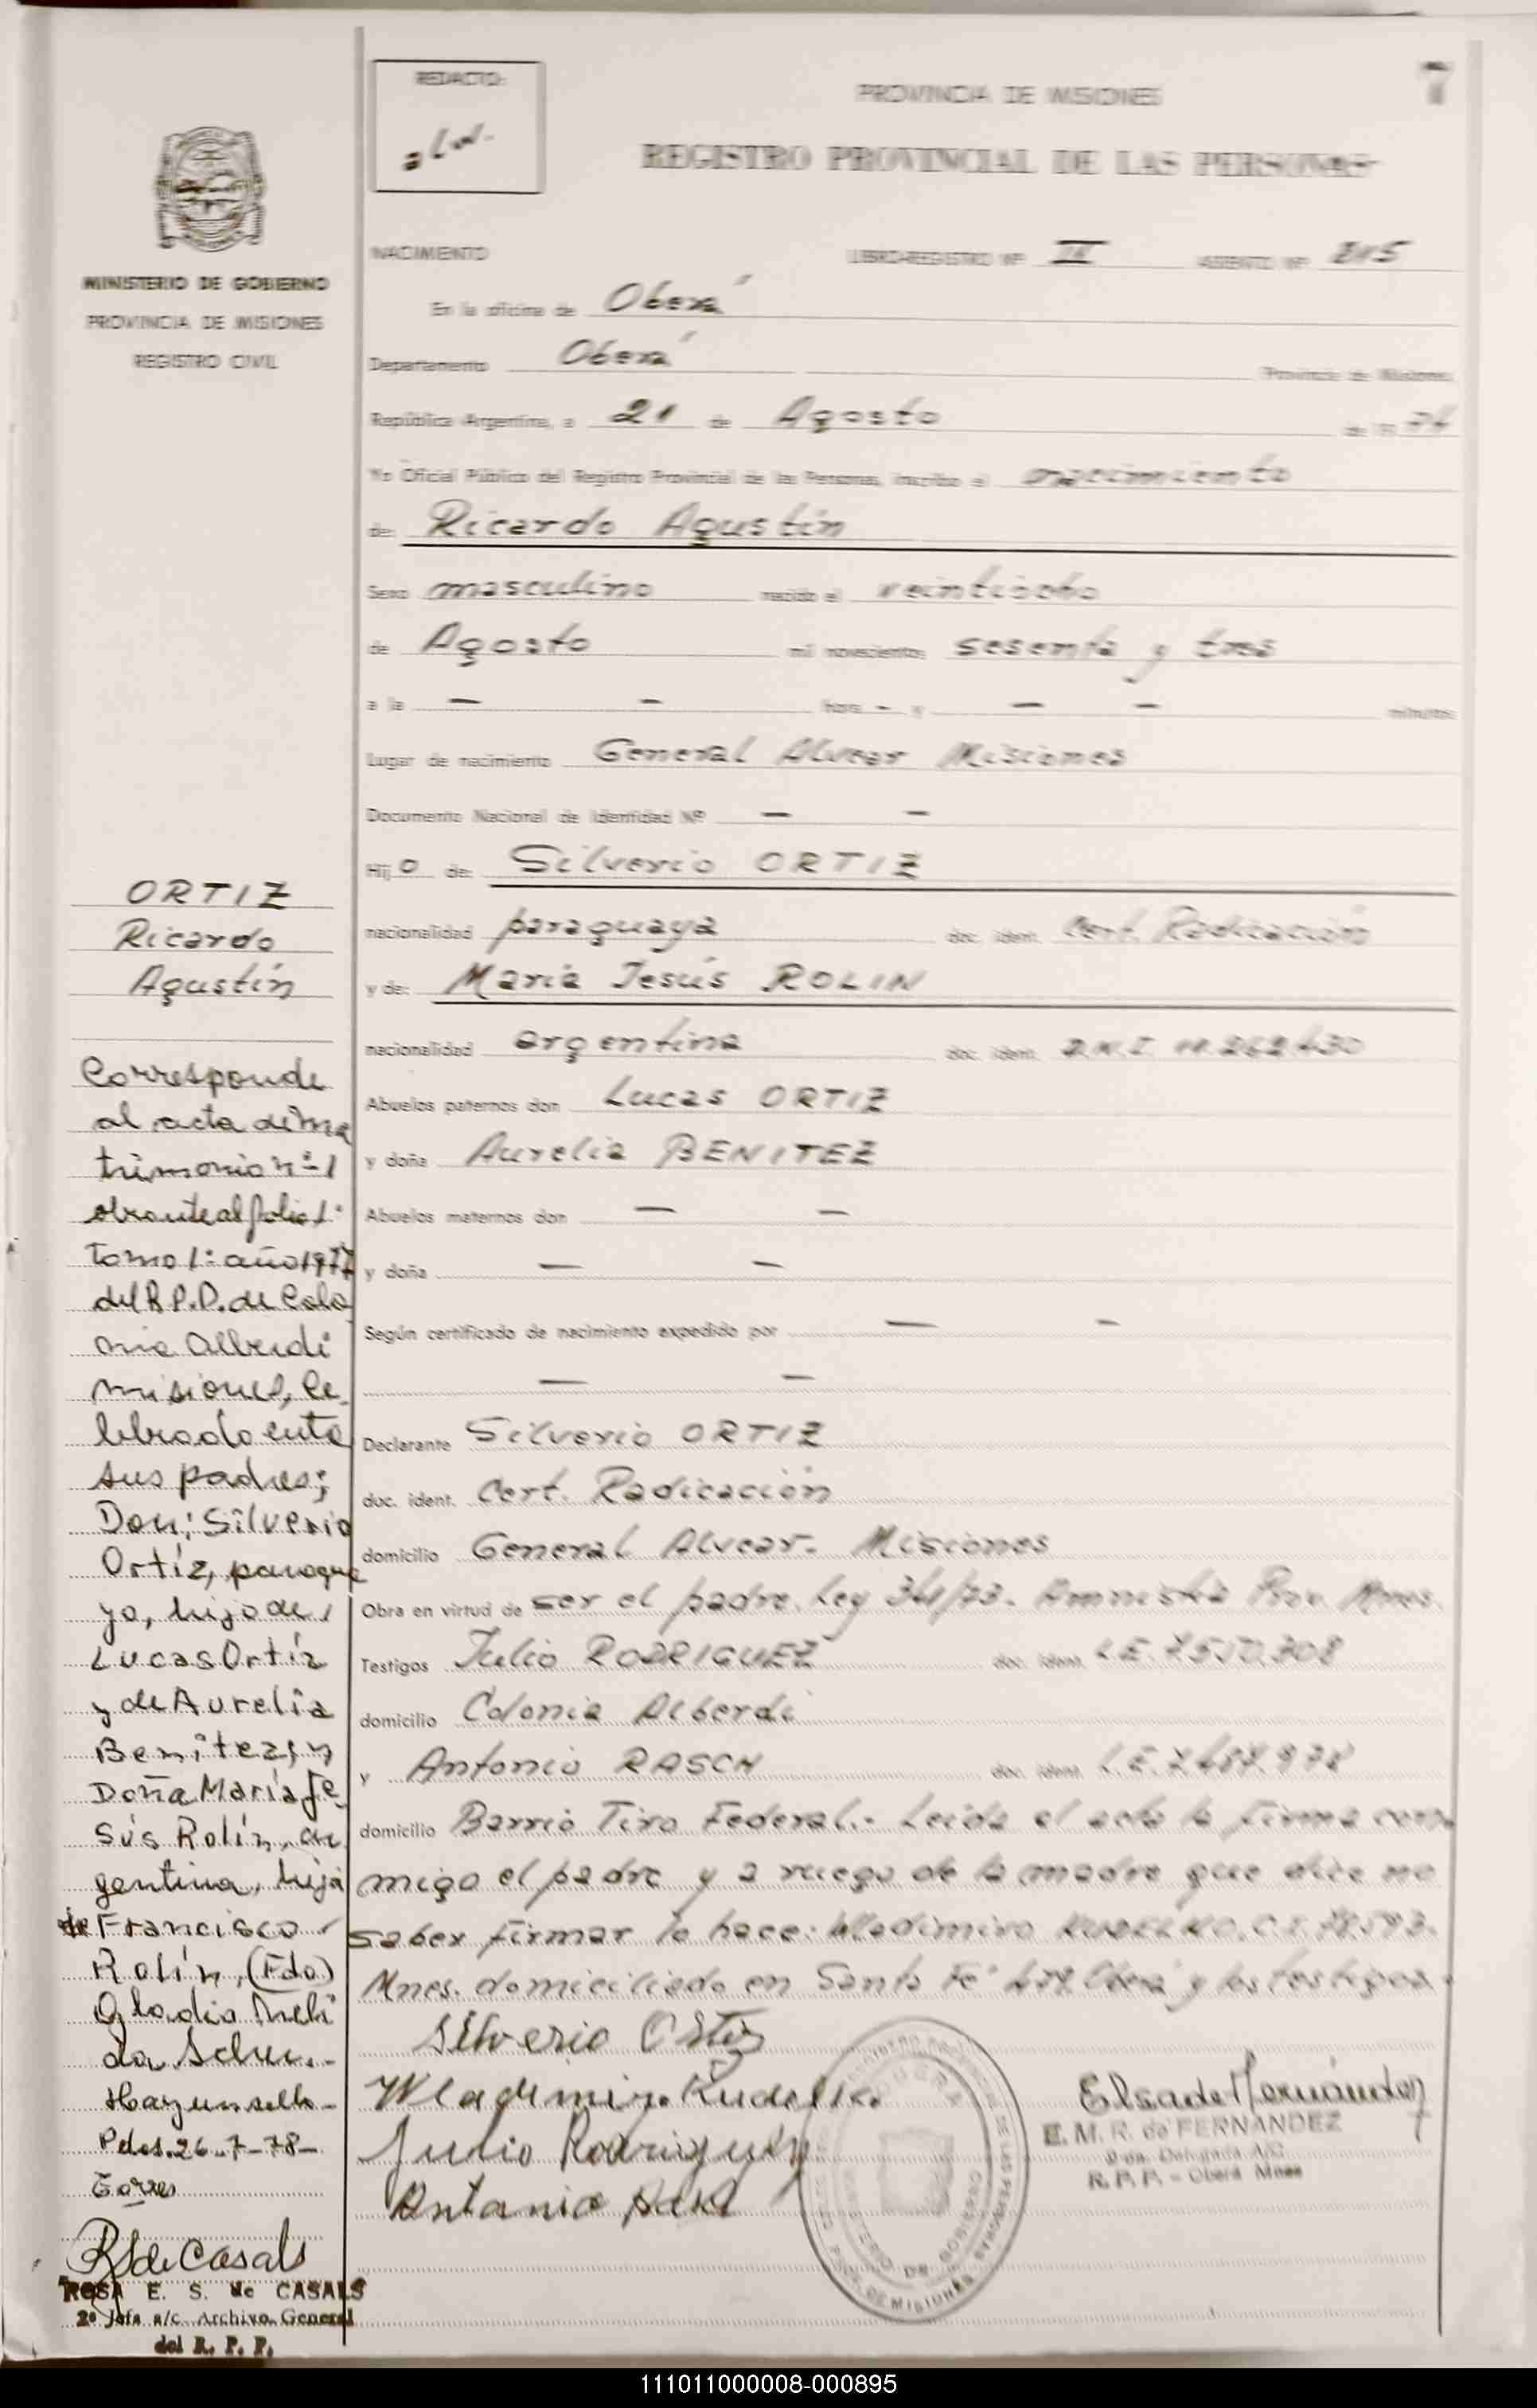 REDACTO:
PROVINCIA DE MISIONES
7
REGISTRO PROVINCIAL DE LAS PERSONAS
MINISTERIO DE GOBIERNO
PROVINCIA DE MISIONES
REGISTRO CIVIL
NACIMIENTO LIBRO-REGISTRO Nº ASIENTO Nº
En la oficina de Oberá
Departamento Oberá Provincia de Misiones
República Argentina, a 21 de Agosto de 19 74
Yo Oficial Público del Registro Provincial de las Personas, inscribo el nacimiento
de: Ricardo Agustín
Sexo masculino nacido el veintiocho
de Agosto mil novecientos sesenta y tres
a la — — hora - y — — minutos
Lugar de nacimiento General Alvear Misiones
Documento Nacional de Identidad Nº — —
Hij o de: Silverio ORTIZ
nacionalidad paraguaya doc. ident. Cert. Radicación
y de: María Jesús ROLIN
nacionalidad argentina doc. ident. D.N.I. 11.262.430
Abuelos paternos don Lucas ORTIZ
y doña Aurelia BENITEZ
Abuelos maternos don — —
y doña — —
Según certificado de nacimiento expedido por — —
— —
Declarante Silverio ORTIZ
doc. ident. Cert. Radicación
domicilio General Alvear. Misiones
Obra en virtud de ser el padre. Ley 341/73. Amnistía Prov. Mnes.
Testigos Julio RODRIGUEZ doc. ident. L.E.
domicilio Colonia Alberdi
y Antonio RASCH doc. ident. L.E. 7.487.978
domicilio Barrio Tiro Federal.- Leída el acta la firma con
migo el padre y a ruego de la madre que dice no
saber firmar lo hace: Wladimiro KUDELKO. C.I. 78.593.
Mnes. domiciliado en Santa Fé 479. Oberá y los testigos.
Silverio Ortiz
Wladimiro Kudelko
Julio Rodriguez
Antonio
Elsa de Fernández
E. M. R. de FERNANDEZ
Delegada A/C
R. P. P. - Oberá Mnes
ORTIZ
Ricardo
Agustín
Corresponde
al acta de ma
trimonio nº 1
obrante al folio 1º
Tomo 1º año 1977
del R.P.P. de Colo
nia Alberdi
misiones, ce
lebrado entre
sus padres;
Don; Silverio
Ortíz, paragua
yo, hijo de
Lucas Ortíz
y de Aurelia
Benitez, y
Doña María Je
sús Rolín, ar
gentina, hija
de Francisco
Rolín, (Fdo)
Gladis Neli
da
Hay un sello-
Pdas. 26-7-78-
Torres
R S de Casals
ROSA E. S. de CASALS
2º Jefa a/c Archivo General
del R. P. P.
111011000008-000895